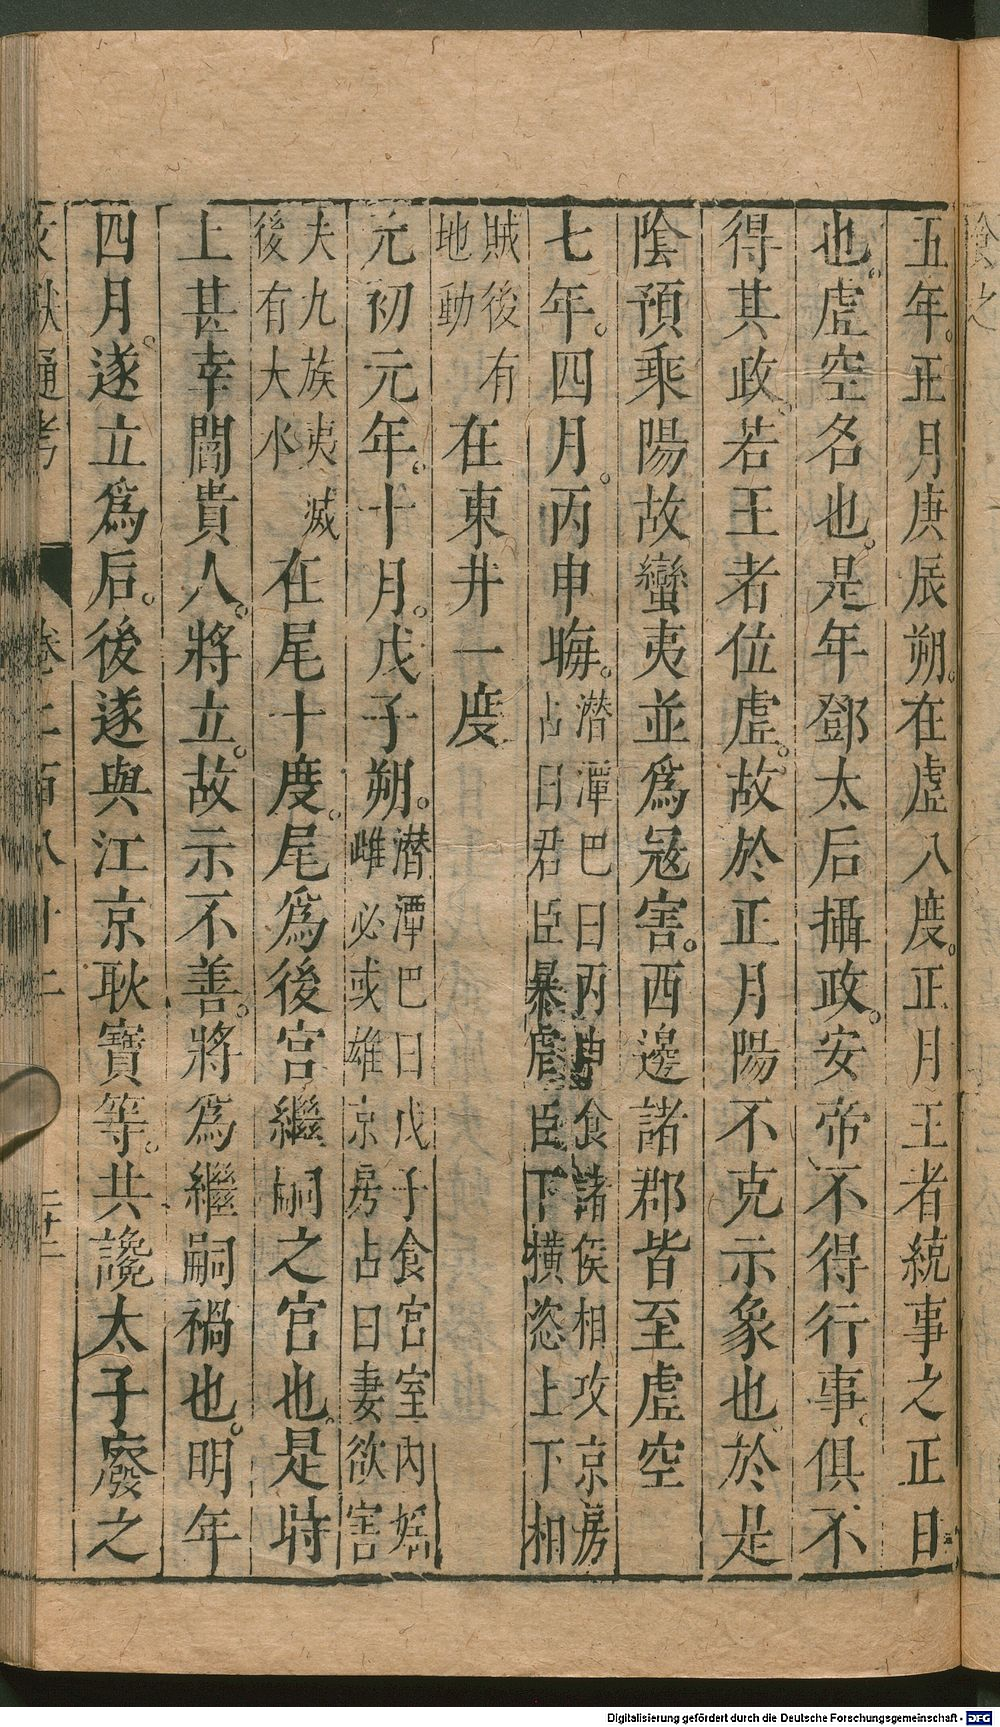 五年。正月庚辰朔。在虛八度。正月王者統事之正日
也。虛空名也。是年鄧太后攝政。安帝不得行事。俱不
得其政。若王者位虛。故於正月陽不克示象也。於是
陰預乘陽故蠻夷並爲冦害。西邊諸郡皆至虛空
七年。四月。丙申晦。潛潭巴曰丙申食諸侯相攻京房
占曰君臣暴虐臣下橫恣上下相
賊後有
地動
在東井一度
元初元年。十月。戊子朔。潛潭巴曰戊子食宮室內婬
雌必或雄京房占曰妻欲害
夫九族夷滅
後有大水
在尾十度。尾爲後宮繼嗣之宮也。是時
上甚幸閻貴人。將立。故示不善。將爲繼嗣禍也。明年
四月。遂立爲后。後遂與江京耿寶等。共讒太子廢之
Digitalisierung gefördert durch die Deutsche Forschungsgemeinschaft - DFG